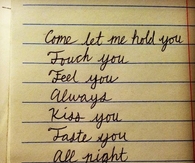 Come let me hold you
Touch you
Feel you
Always
Kiss you
Taste you
All night